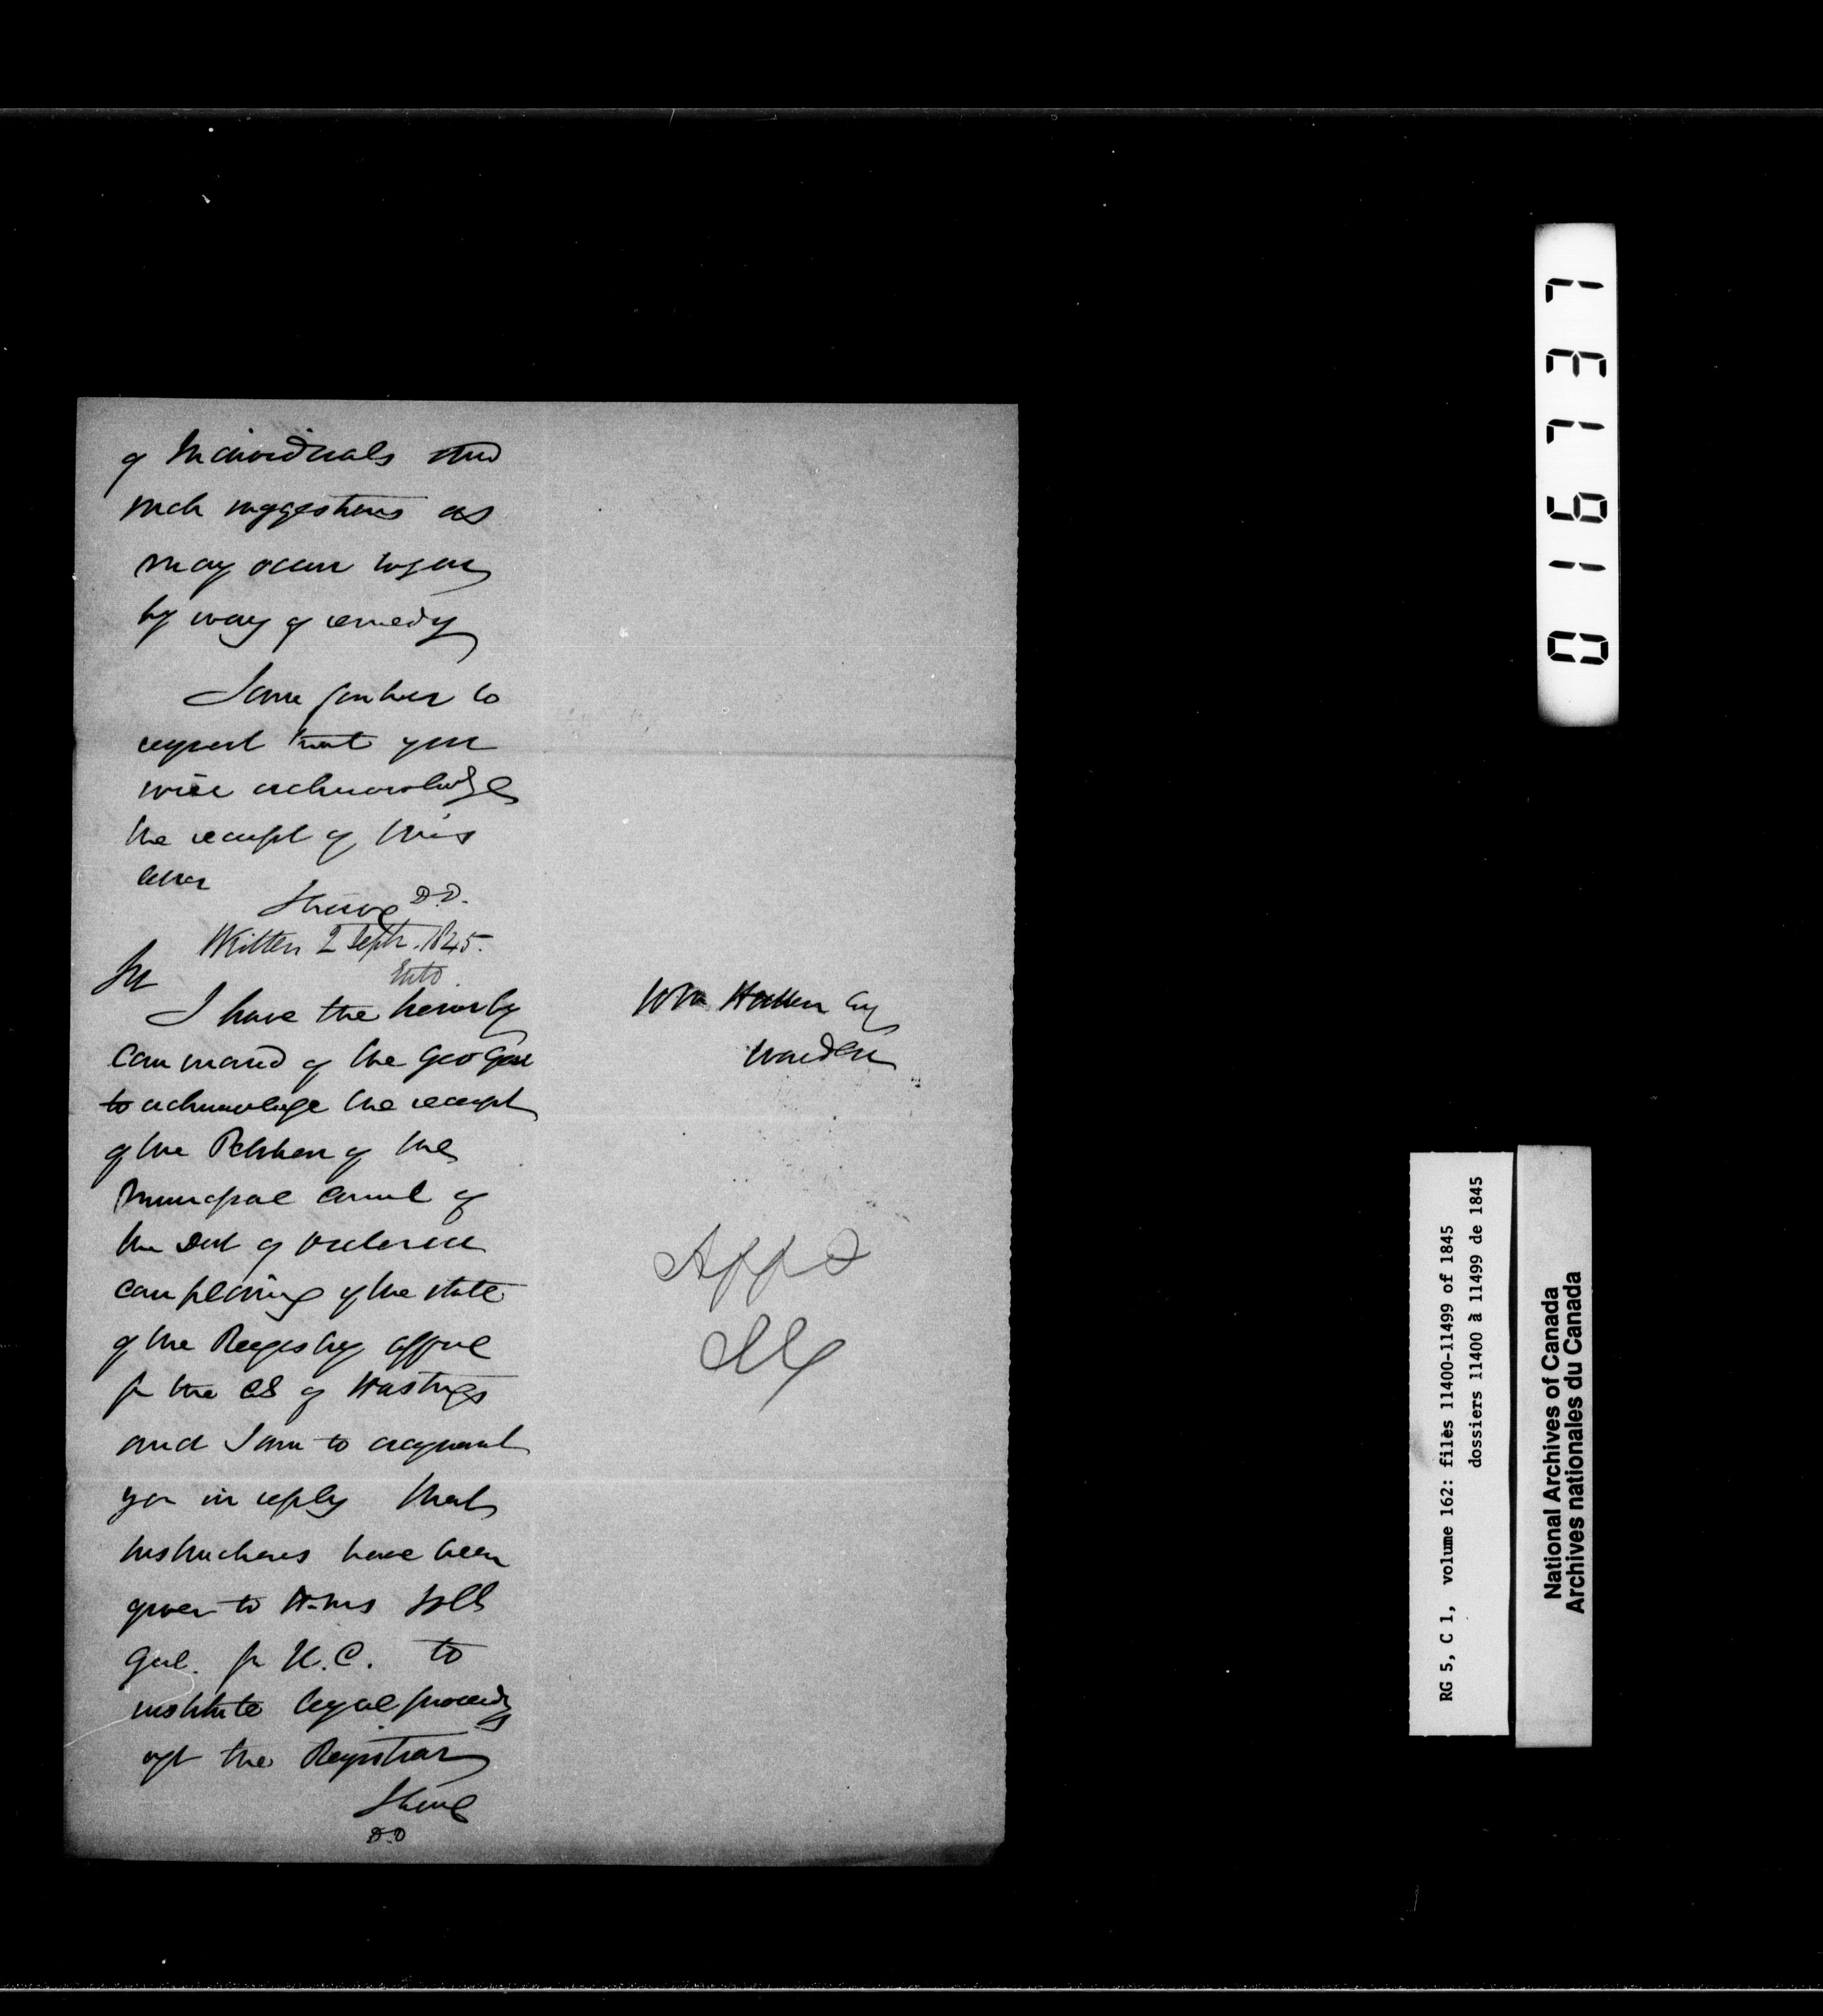 of Individuals and
such suggestions as
may occur to you
by way of remedy
I am further to
request that you
will acknowledge
the receipt of this
letter
I have D.D.
Written 2 Septr. 1845.
Entd.
Sir
I have the honor by
command of the Gov Genl
to acknowledge the receipt
of the Petition of the
Municipal Council of
the Dist of Victoria
complaining of the state
of the Registry office
for the Co of Hastings
and I am to acquaint
you in reply that
Instructions have been
given to H.Ms Solr
Genl. for U.C. to
institute legal proceedgs
agt the Registrar
I have
D.D
Wm Hutton Esq
Warden
Appd
RG 5, C 1, volume 162: files 11400-11499 of 1845
dossiers 11400 à 11499 de 1845
National Archives of Canada
Archives nationales du Canada
016737